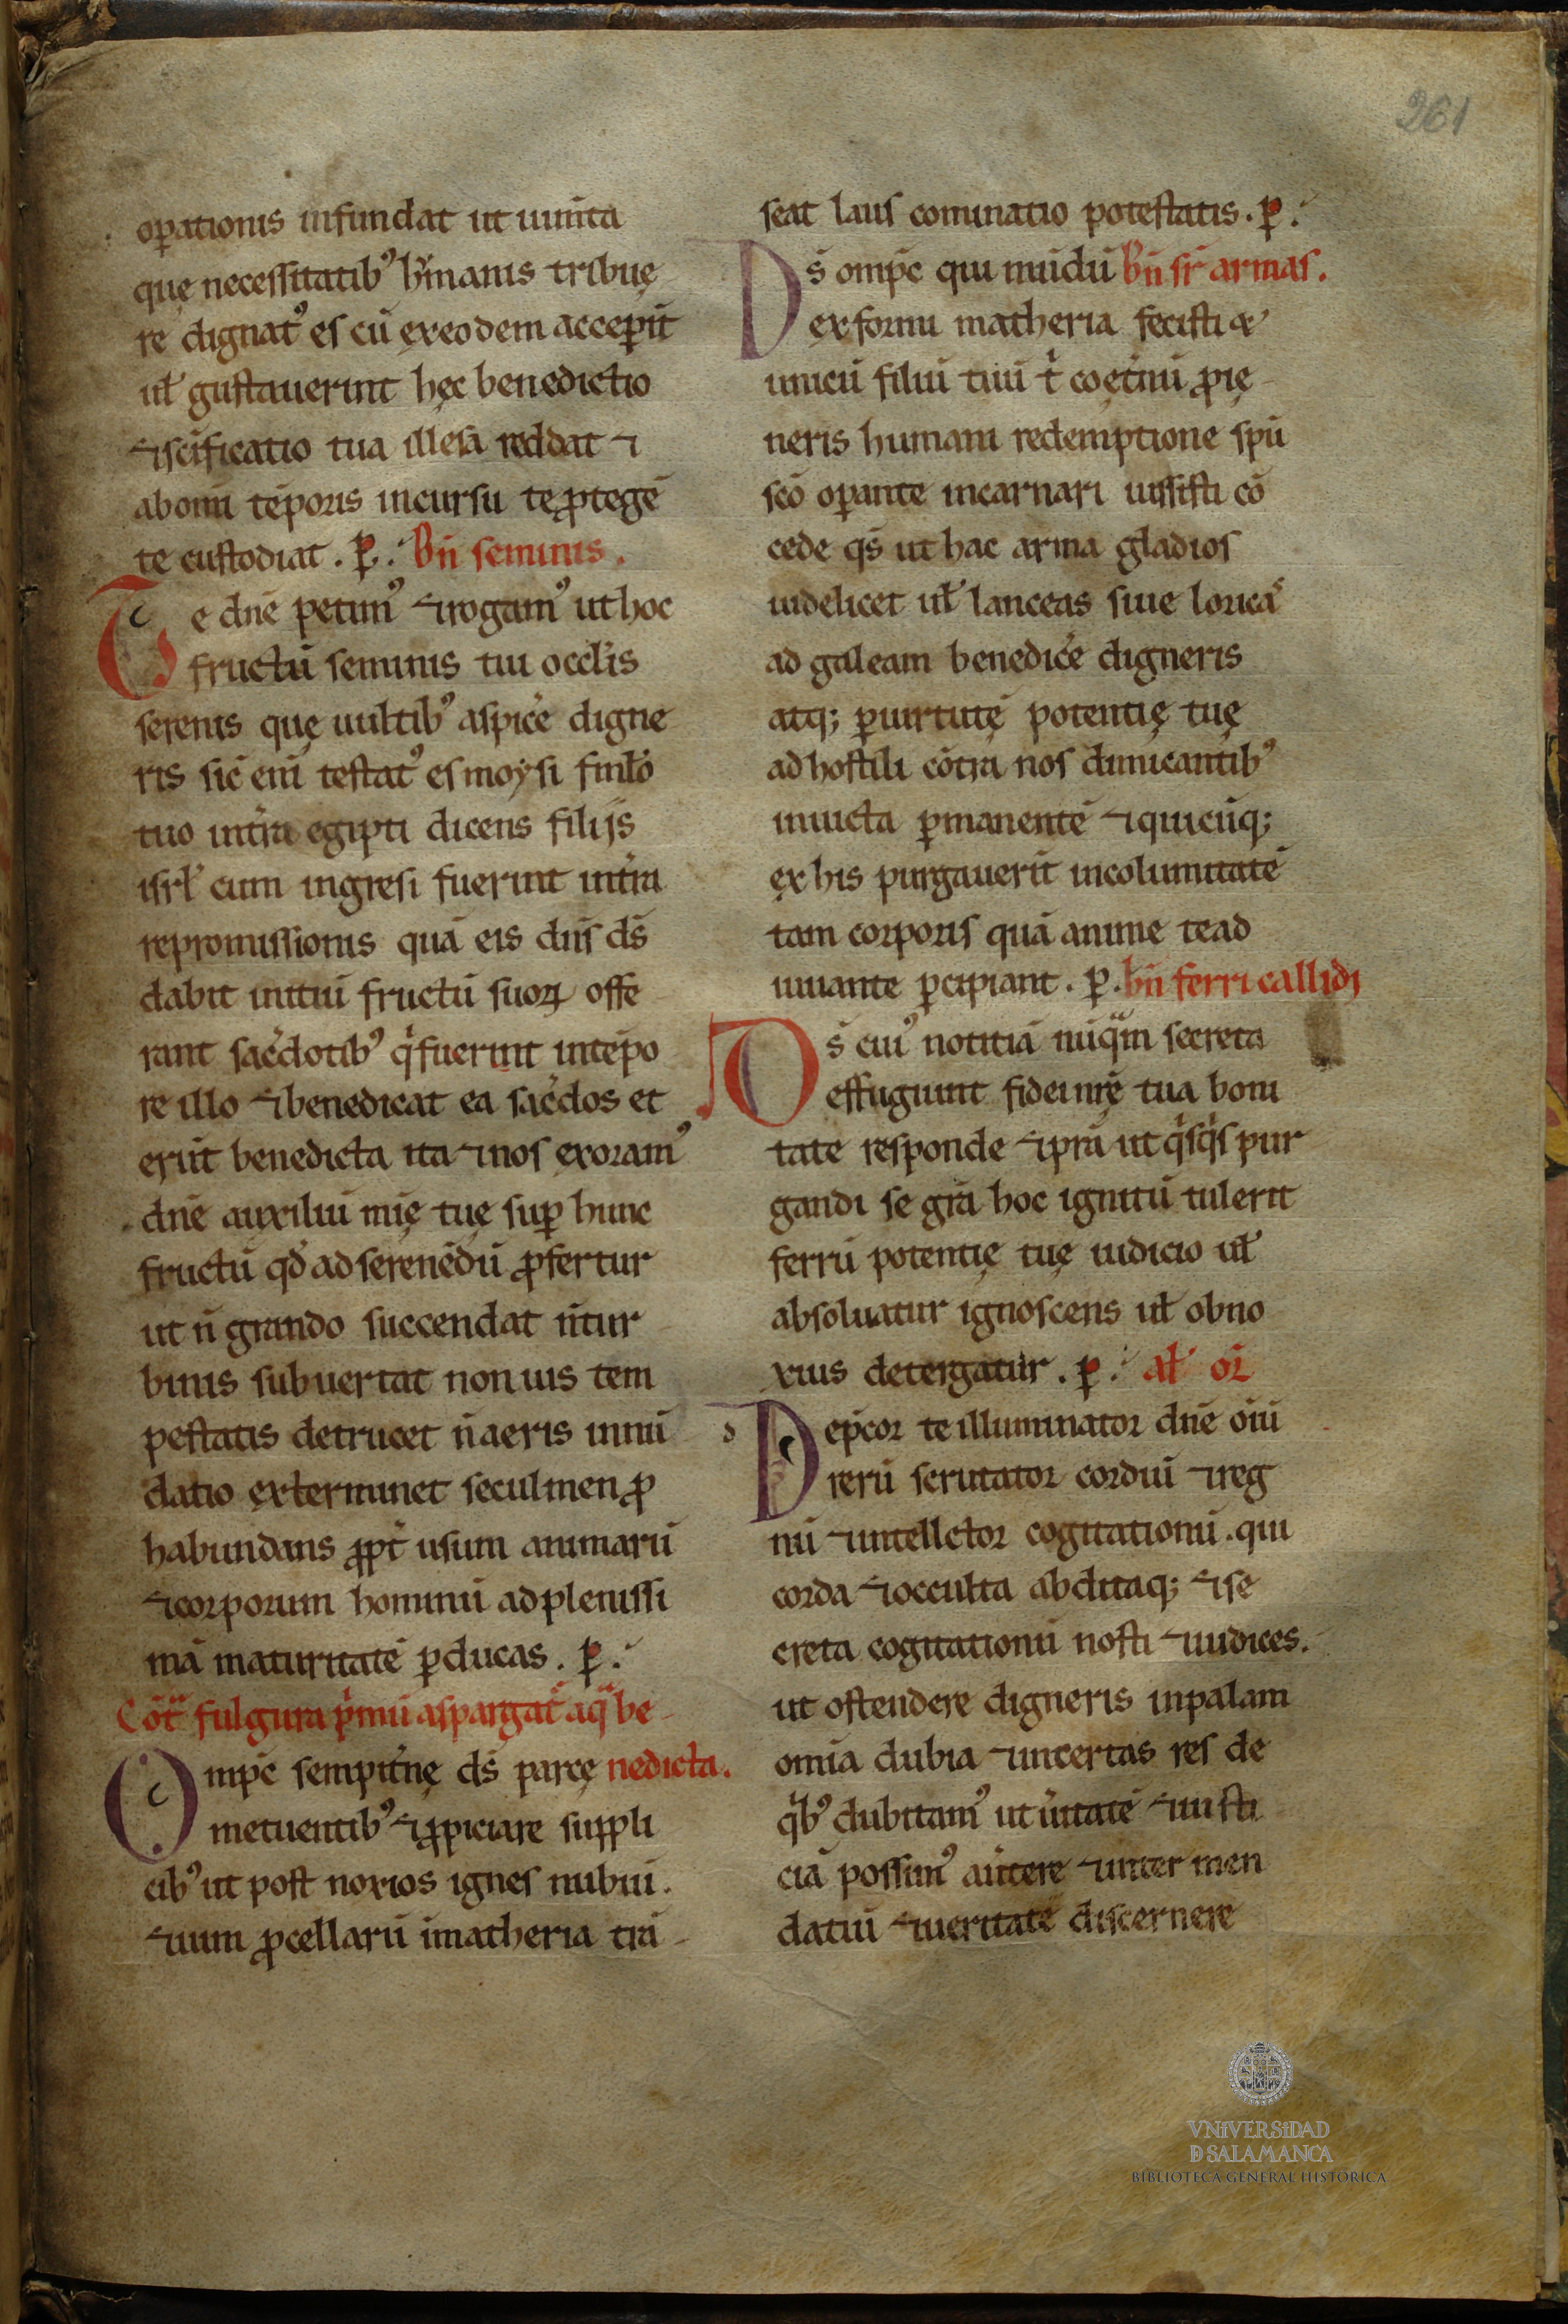 261
oꝑationis infundat ut uiuiṫa
quę necessitatibꝰ hͧmanis tribuę
re dignatꝰ es cū ex eodem acceꝑıt
uł gustauerint hęc benedictio
⁊ sc̄ificatio tua illesā reddat ⁊
ab oṁi tēporis incursu te ꝓtegē
te custodiat . ꝑ. Bn̄ seminis.
Te dn̄e petimꝰ ⁊ rogamꝰ ut hoc
fructū seminis tui occłis
serenis quę uultibꝰ aspic̄e digne
ris sic̄ eni testatꝰ es moysi famło
tuo inṫra egipti dicens filijs
isrł cum ingresi fuerint inṫra
repromissionis quā eis dn̄s ds̄
dabit initiū fructū suoꝝ offe
rant sac̄dotibꝰ q̇ fuerint in tēpo
re illo ⁊ benedicat ea sac̄dos et
erūt benedicta ita ⁊ nos exoramꝰ
dn̄e auxiliū mīę tuę suꝑ hunc
fructū qd̄ ad serenēdū ꝓfertur
ut n̄ grando succendat n̄ tur
binis subuertat non uis tem
pestatis detrucet n̄ aeris innū
datio exterminet seculmen ꝓ
habundans ꝓpṫ usum animarū
⁊ corporum hominū ad plenissi
mā maturitatē ꝑducas . ꝑ.
Cōtͣ fulgura pͥmū aspargat̄ aqͣ be
Omp̄c sempiṫnę ds̄ parcę nedicta.
metuentibꝰ ⁊ ꝓpiciare suppli
cibꝰ ut post noxios ignes nubiū.
⁊ uim ꝓcellarū ī matheria trā
seat laus cominatio potestatis . ꝑ.
Ds̄ omp̄c qui mūdū Bn̄ sr̄ armas.
ex formi matheria fecisti ⁊
unicū filiū tuū ṫ coęṫnū ꝓ ię
neris humani redemptione spū
scō oꝑante incarnari iussisti cō
cede qs̄ ut hac arma gladios
uidelicet uł lanceas siue loricaˢ
ad galeam benedic̄e digneris
atq; ꝑ uirtutē potentię tuę
ad hostili cōtra nos dimicantibꝰ
inuicta ꝑmanentē ⁊ quicūq;
ex his purgauerit incolumitatē
tam corporis quā anime te ad
iuuante ꝑcipiant . ꝑ. bn̄ ferri callidi
Ds̄ cuiꝰ notitiā nūqͣm secreta
effugiunt fidei nr̄ę tua boni
tate responde ⁊ pr̄a ut qͥsqͥs pur
gandi se grā hoc ignitū tulerit
ferrū potentię tuę iudicio uł
absoluatur ignoscens uł obno
xius detergatur . ꝑ. ał or̄
Dep̄cor te illuminator dn̄e oīū
rerū scrutator cordiū ⁊ reg
nū ⁊ intellctor cogitationū . qui
corda ⁊ occulta abditaq; ⁊ se
creta cogitationū nosti ⁊ iudices.
ut ostendere digneris inpalam
omīa dubia ⁊ incertas res de
qͥbꝰ dubitamꝰ ut ūitatē ⁊ iusti
ciā possimꝰ aūtere ⁊ inter men
datiū ⁊ ueritatē discernere
VNiVERSiDAD
D SALAMANCA
BIBLIOTECA GENERAL HISTÓRICA